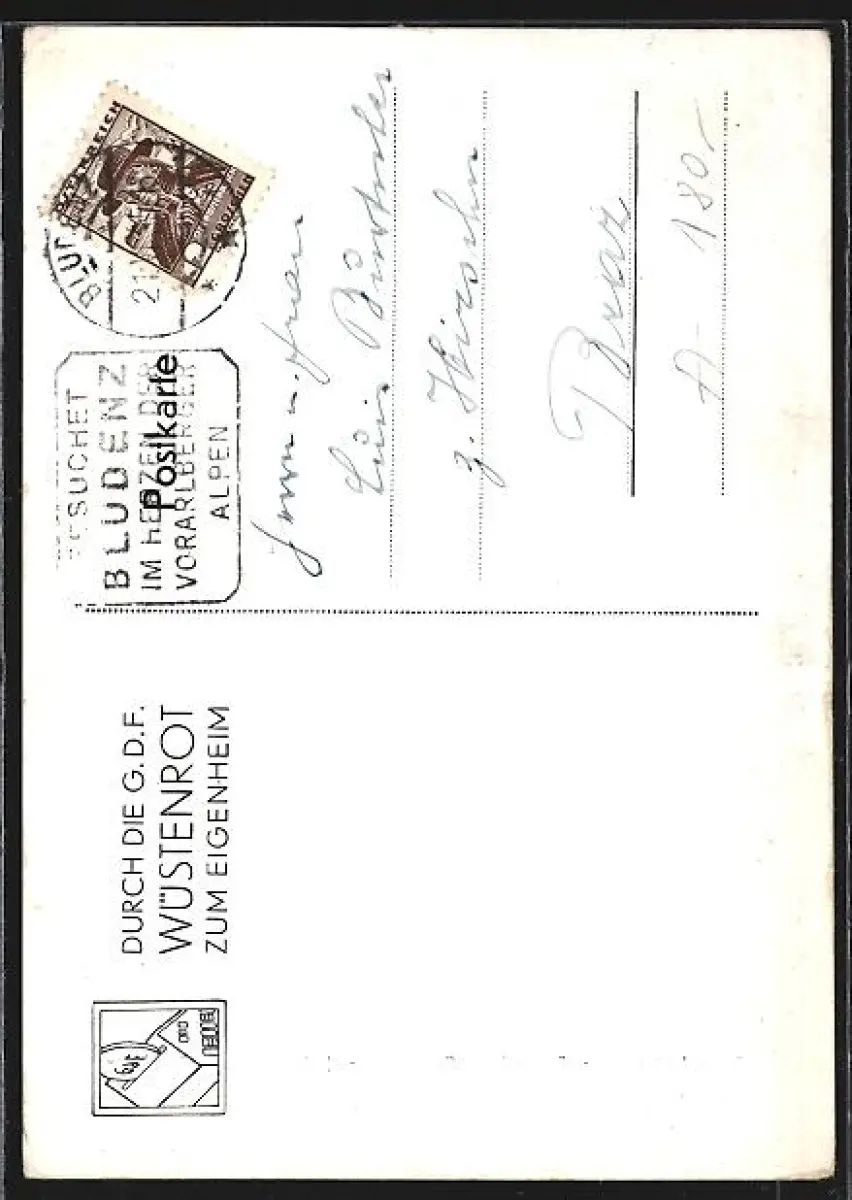 DURCH DIE G.D.F.
WÜSTENROT
ZUM EIGENHEIM
GdF
Postkarte
ÖSTERREICH
BLUDENZ
21
BESUCHET
BLUDENZ
IM HERZEN DER
VORARLBERGER
ALPEN
Herrn u. Frau
z. Hirschen
Braz
A- 180,-